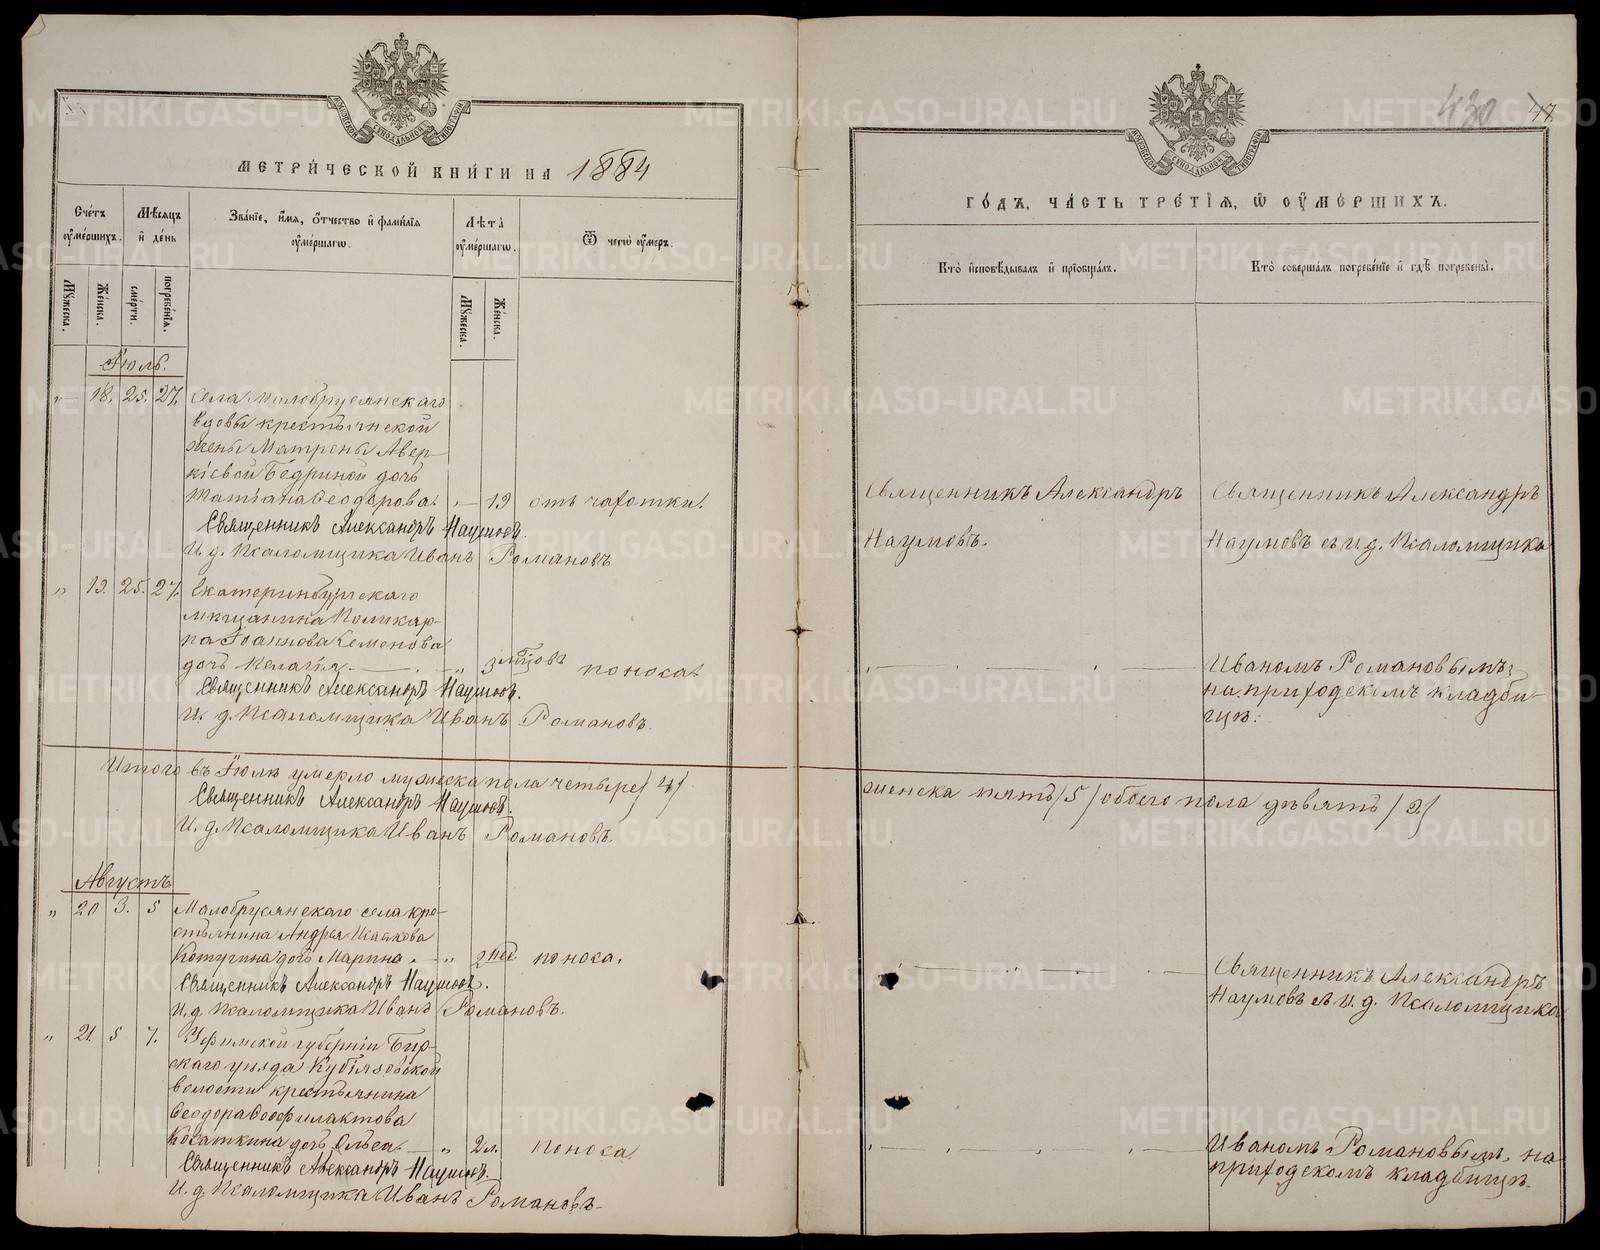 МЕТРИЧЕСКОЙ КНИГИ НА 1884
Счетъ умершихъ.
Мѣсяцъ и день
Званіе, имя, отчество и фамилія умершагѡ.
Лѣта умершагѡ.
Ѿ чегѡ умеръ.
Мужеска.
Женска.
смерти.
погребенія.
Мужеска.
Женска.
Іюль.
18. 25. 27. Села Малобрусянскаго
вдовы крестьянской
жены Матрены Авер-
кіевой Бедриной дочь
Татіана Ѳеодорова. — 19 отъ чахотки.
Священникъ Александръ Наумовъ.
И. д. Псаломщика Иванъ Романовъ
" 19. 25. 27. Екатеринбургскаго
мѣщанина Поликар-
па Іоаннова Семенова
дочь Пелагія. — " 3 мѣсяцовъ поноса.
Священникъ Александръ Наумовъ.
И. д. Псаломщика Иванъ Романовъ.
Итого въ Іюлѣ умерло мужеска пола четыре /4/
Священникъ Александръ Наумовъ.
И. д. Псаломщика Иванъ Романовъ.
Августъ
" 20 3. 5 Малобрусянскаго села кре-
стьянина Андрея Исакова
Котугина дочь Марина. — " 2 поноса.
Священникъ Александръ Наумовъ.
И. д. Псаломщика Иванъ Романовъ.
" 21. 5 7. Уфимской губерніи Бир-
скаго уѣзда Кубіязовской
волости крестьянина
Ѳеодора Ѳеофилактова
Косаткина дочь Ольга. — " 2 л. поноса
Священникъ Александръ Наумовъ.
И. д. Псаломщика Иванъ Романовъ.
430 47.
ГОДЪ, ЧАСТЬ ТРЕТІЯ, Ѿ УМЕРШИХЪ.
Кто исповѣдывалъ и пріобщалъ.
Кто совершалъ погребеніе и гдѣ погребены.
Священникъ Александръ
Наумовъ.
Священникъ Александръ
Наумовъ съ и. д. Псаломщика
Иваномъ Романовымъ,
на приходскомъ кладби-
щѣ.
женска пять /5/ обоего пола девять /9/
Священникъ Александръ
Наумовъ съ И. д. Псаломщика
Иваномъ Романовымъ, на
приходскомъ кладбищѣ.
METRIKI.GASO-URAL.RU